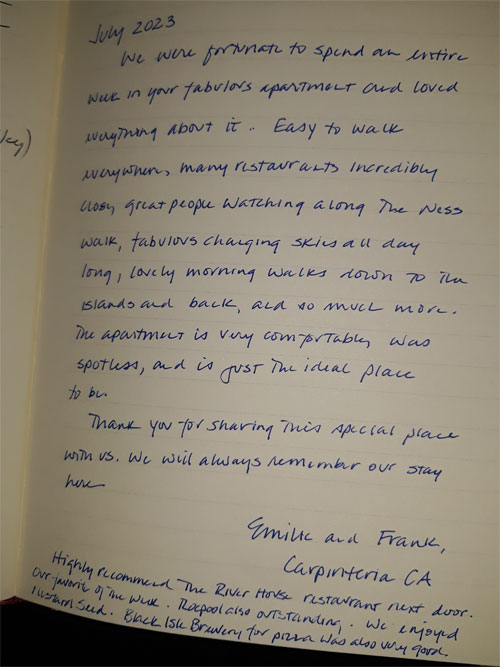 July 2023
We were fortunate to spend an entire
week in your fabulous apartment and loved
everything about it. Easy to walk
everywhere, many restaurants incredibly
close, great people watching along the Ness
walk, fabulous changing skies all day
long, lovely morning walks down to the
islands and back, and so much more.
The apartment is very comfortable, was
spotless, and is just the ideal place
to be.
Thank you for sharing this special place
with us. We will always remember our stay
here
Emilie and Frank,
Carpinteria CA
Highly recommend The River House restaurant next door.
Our favorite of the week. Rocpool also outstanding. We enjoyed
Mustard Seed. Black Isle Brewery for pizza was also very good.